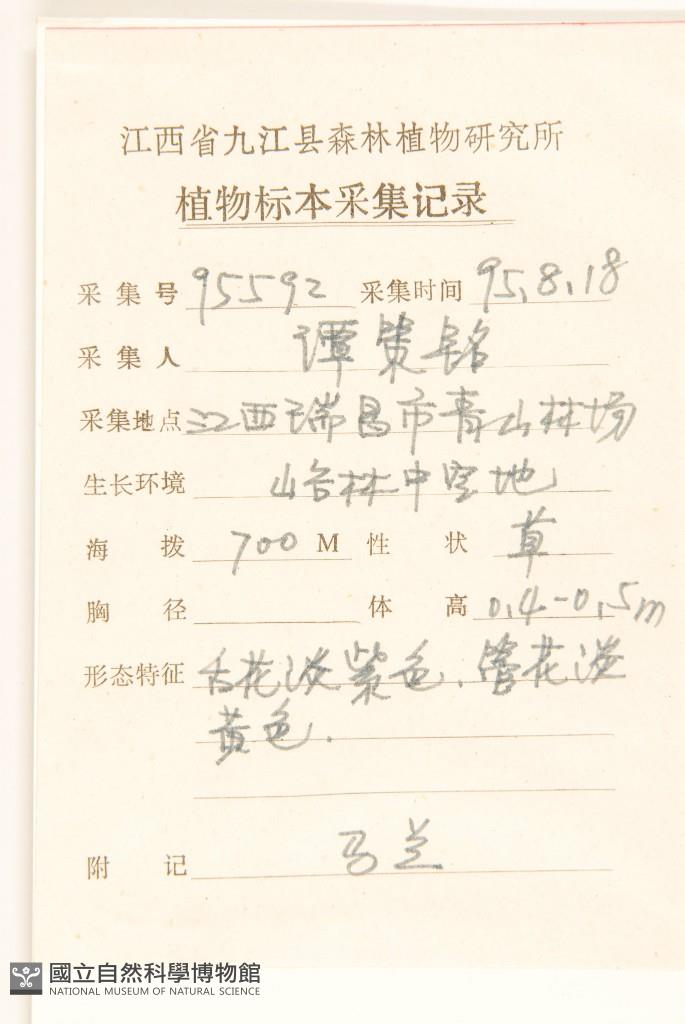 江西省九江县森林植物研究所
植物标本采集记录
采集号 95592 采集时间 95.8.18
采集人 谭策铭
采集地点 江西瑞昌市青山林场
生长环境 山谷林中空地
海拨 700 M 性状 草
胸径 体高 0.4-0.5m
形态特征 舌花淡紫色.管花淡
黄色.
附记 马兰
國立自然科學博物館
NATIONAL MUSEUM OF NATURAL SCIENCE